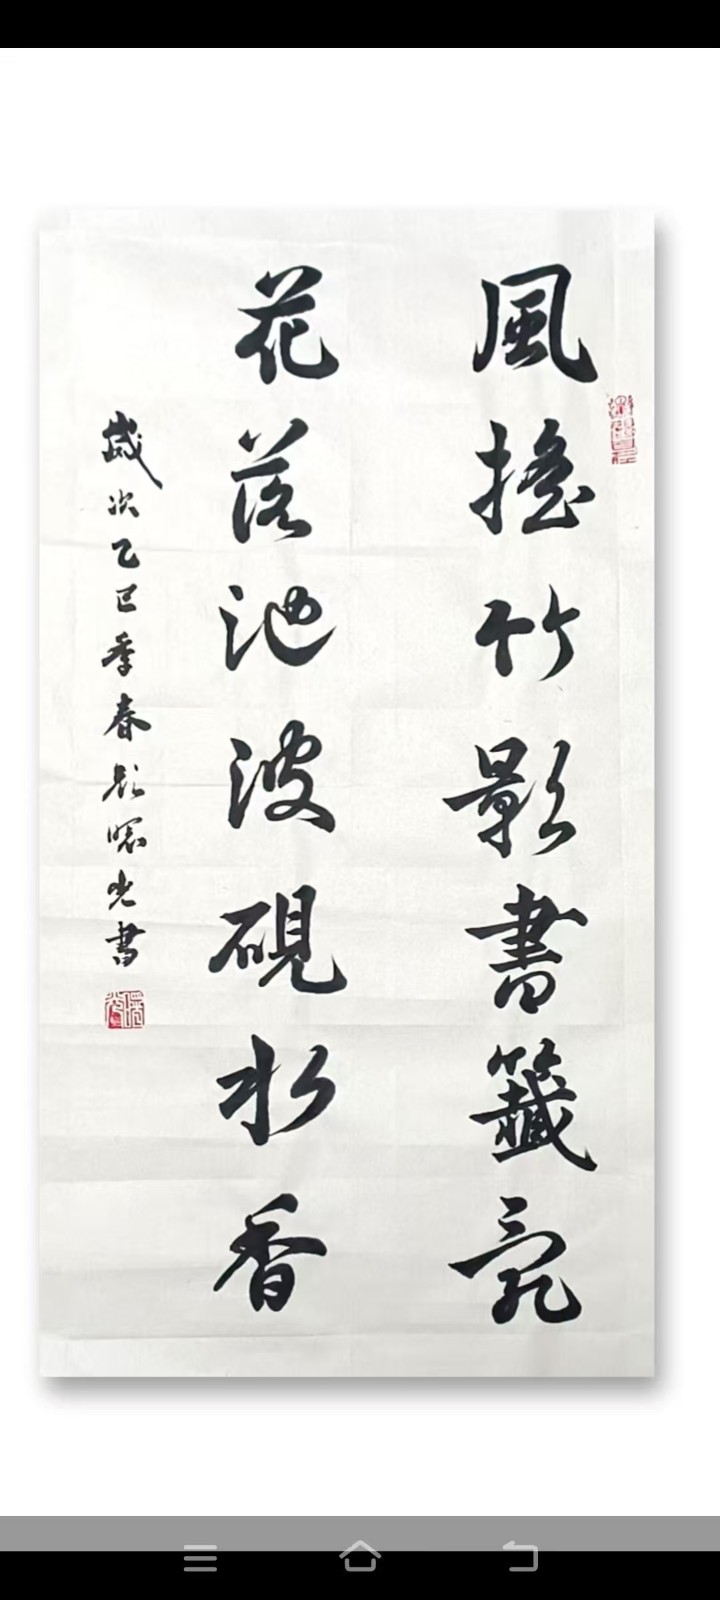 風搖竹影書籤亂
花落池波硯水香
歲次乙巳季春彭曙光書